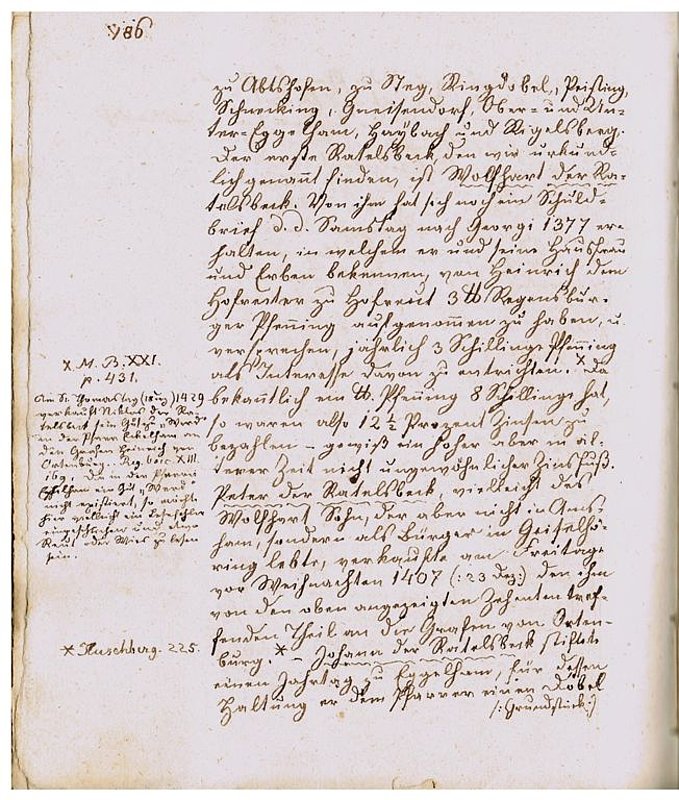 786
zu Abtshofen, zu Steg, Ringdobel, Peißing,
Schnecking, Gneisendorf, Ober- und Un-
ter-Eggelham, Haybach und Rigelsberg.
Der erste Ratelsbeck, den wir urkund-
lich genan̄t finden, ist Wolfhart der Ra-
telsbeck. Von ihm hat sich noch ein Schuld-
brief d. d. Samstag nach Georgi 1377 er-
halten, in welchem er und seine Hausfrau
und Erben bekennen, von Heinrich dem
Hofreiter zu Hofreit 3 ℔ Regensbur-
ger Pfenning aufgenom̄en zu haben, u.
versprechen, jährlich 3 Schillinge Pfenning
als Interesse davon zu entrichten. x Da
bekan̄tlich ein ℔. Pfenning 8 Schillinge hat,
so waren also 12 1/2 Prozent Zinsen zu
bezahlen – gewiß ein hoher aber in äl-
terer Zeit nicht ungewöhnlicher Zinsfuß.
Peter der Ratelsbeck, vielleicht des
Wolfhart Sohn, der aber nicht in Ams-
ham, sondern als Bürger in Geiselhö-
ring lebte, verkaufte am Freitage
vor Weihnachten 1407 (: 23 Dez:) den ihm
von den oben angezeigten Zehenten tref-
fenden Theil an die Grafen von Orten-
burg. * – Johann der Ratelsbeck stiftete
einen Jahrtag zu Eggelham, für dessen
Haltung er dem Pfarrer einen Dobel
/: Grundstück :/
x. M. B. XXI.
p. 431.
Am St. Thomastag 1429
verkauft Niklas der Ra-
telsbeck sein Gut zu "Werd"
in der Pfarr Eckelham an
den Grafen Heinrich von
Ortenburg. Reg. boic. XIII.
169. Da in der Pfarrei
Egglham ein Gut "Werd"
nicht existirt, so möchte
hier vielleicht ein Lesefehler
eingeschlichen und etwa
Reut oder Wies zu lesen
sein.
* Huschberg. 225.